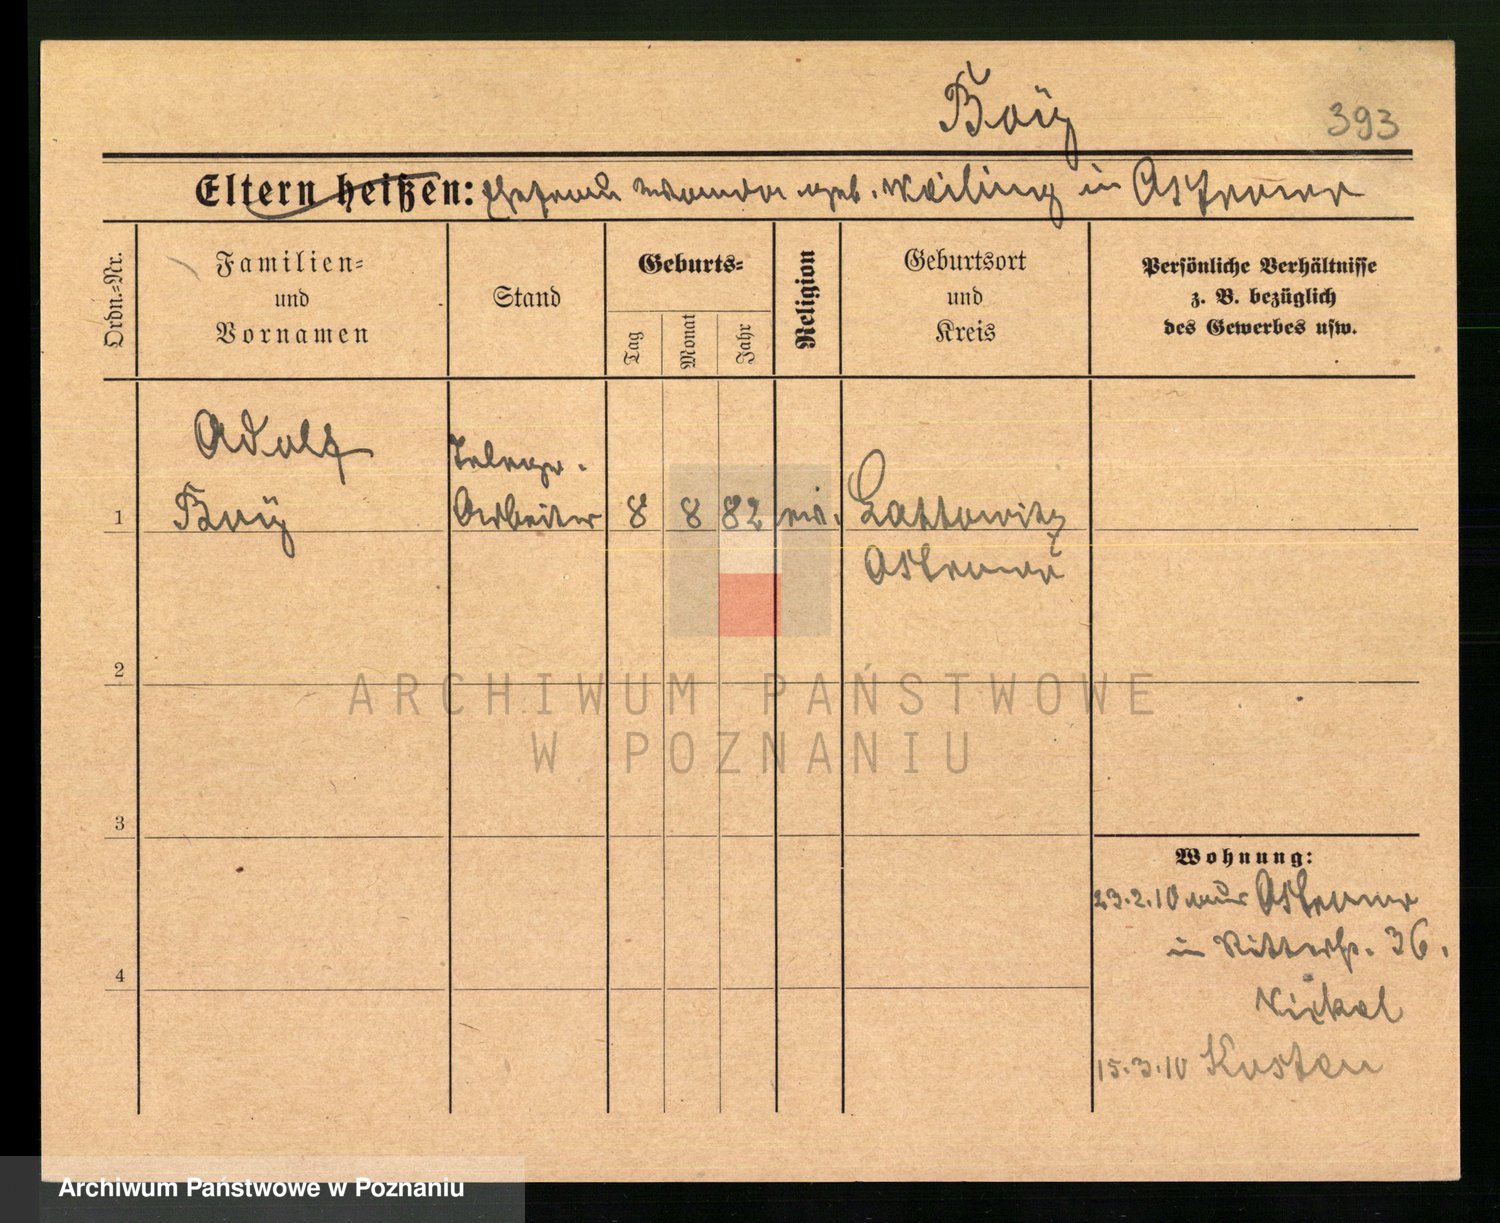 Boÿ 393
Eltern heißen: Ehefrau Wanda geb. Weiling in Ostrowo
Ordn.-Nr.
Familien-
und
Vornamen
Stand
Geburts-
Tag
Monat
Jahr
Religion
Geburtsort
und
Kreis
Persönliche Verhältnisse
z. B. bezüglich
des Gewerbes usw.
Adolf
Boÿ
Telegr.
Arbeiter
8 8 82
Ostrowo
1
2
3
4
Wohnung:
23.2.10 aus Ostrowo
in Ritterstr. 36.
15.3.10 Kosten
ARCHIWUM PAŃSTWOWE
W POZNANIU
Archiwum Państwowe w Poznaniu